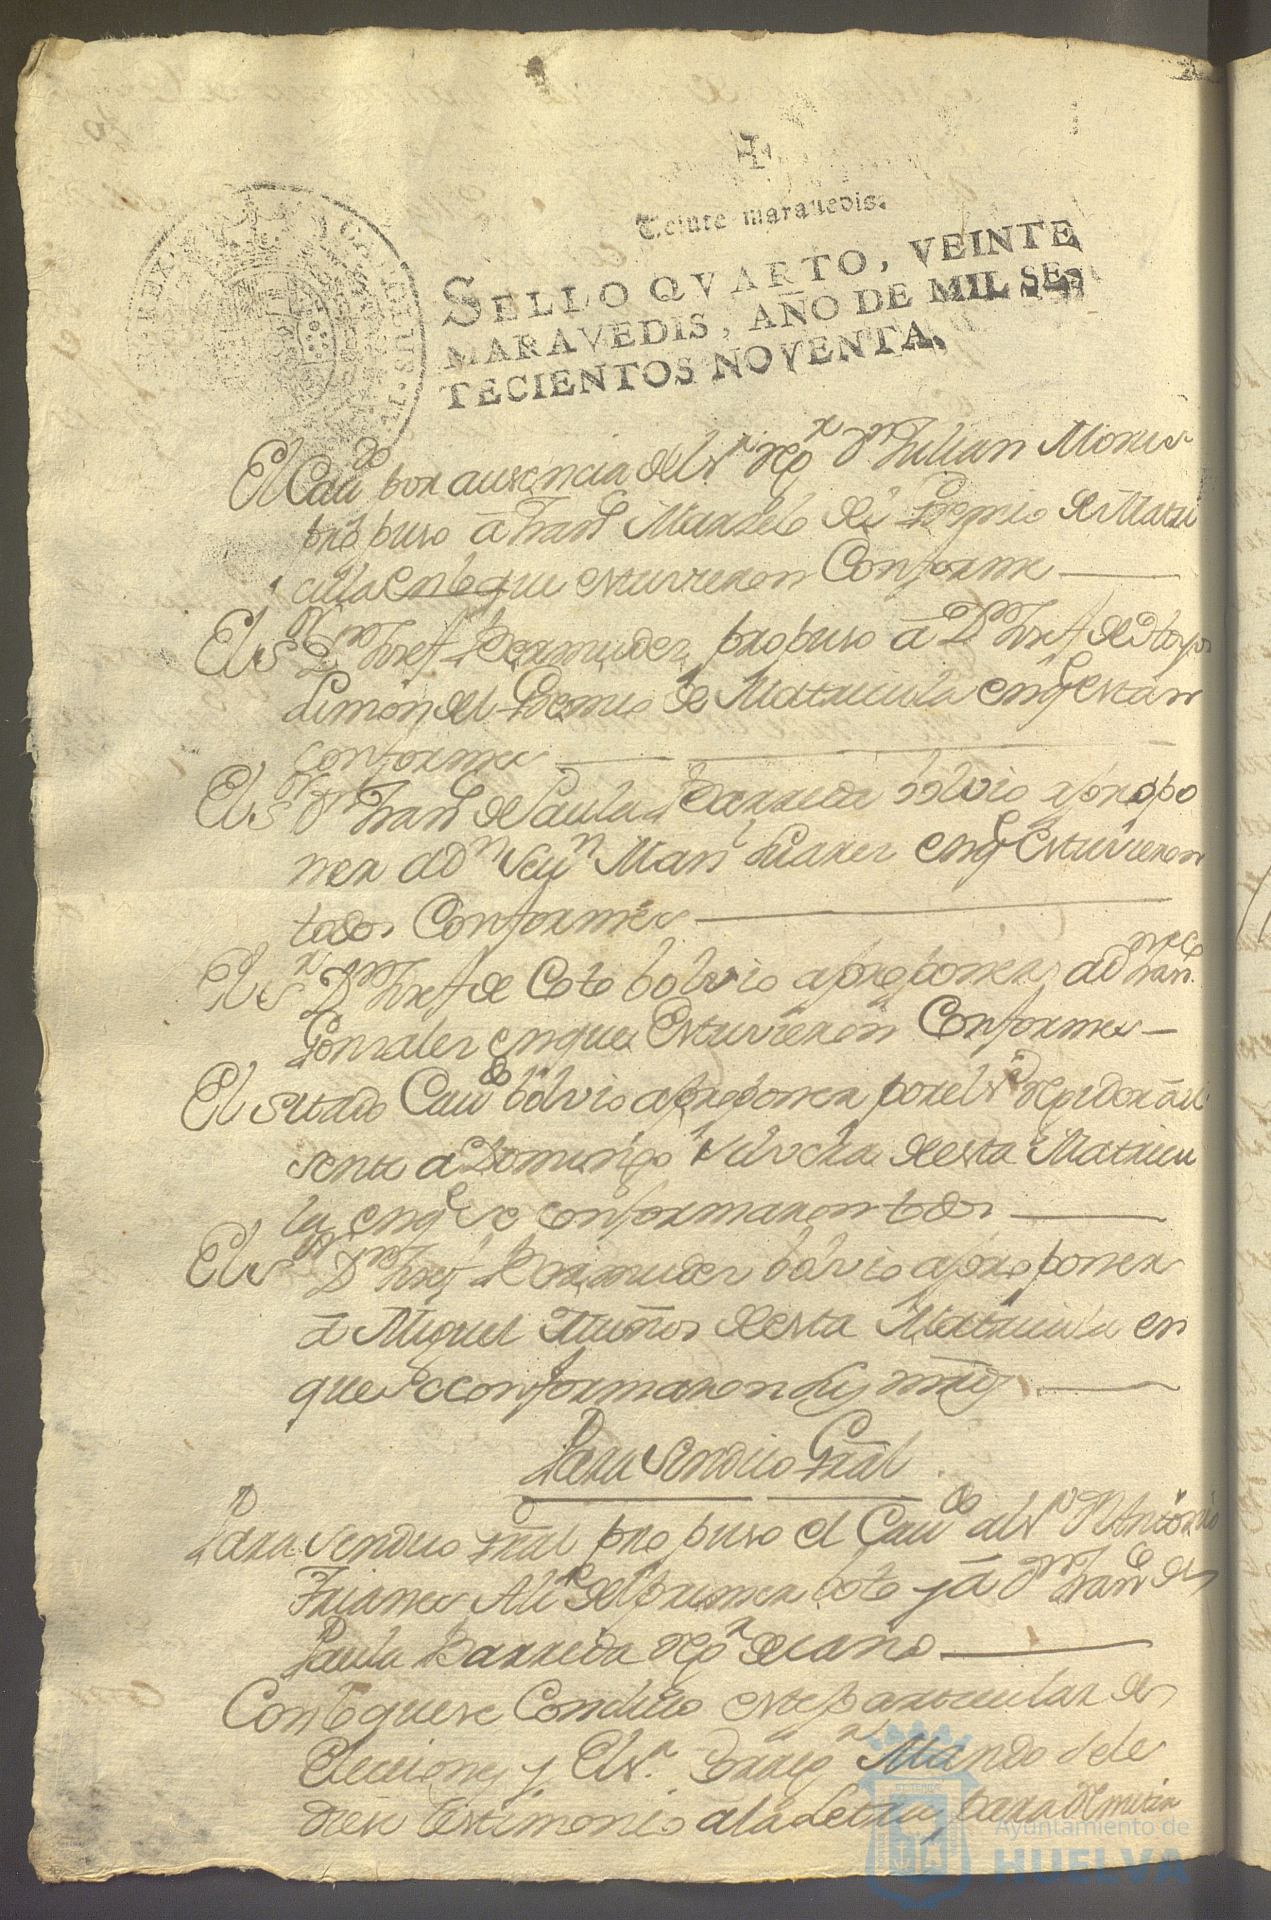 Veinte maravedis.
SELLO QVARTO, VEINTE
MARAVEDIS, AÑO DE MIL SE-
TECIENTOS NOVENTA.
El Cavdo por ausencia del Sr Regr Dn Julian
propuso â Franco del Gremio de Matri
cula en lo que estuvieron Conforme
El Sor Dn Josef Bermudez propuso â Dn Josef de
Limon del Gremio de Matricula en qe estan
conformes
El Sor Dn Franco de Paula Barreda bolvio a propo
ner a Dn Man Suarez en qe Estuvieron
todos Conformes
El Sr Dn Josef de Coto bolvio a proponer a Dn Franco
Gonzalez en que Estuvieron Conformes
El sitado Cavdo bolvio a proponer por el Sr Regidor au
sente a Domingo de esta Matricu
la en qe se conformaron todos
El Sor Dn Josef Bermudez bolvio a proponer
â Miguel Muños de esta Matricula en
que se conformaron
Para Sendico Gral
Para Sendico Gral propuso el Cavdo al Sr Dn Antonio
Alc de primer voto y â Dn Franco de
Paula Barreda Regr decano
Con lo que se Concluio este particular de
Elecciones y El Sr Corregr Mando se le
diese testimonio a la Letra para Remitir
Ayuntamiento de
HUELVA